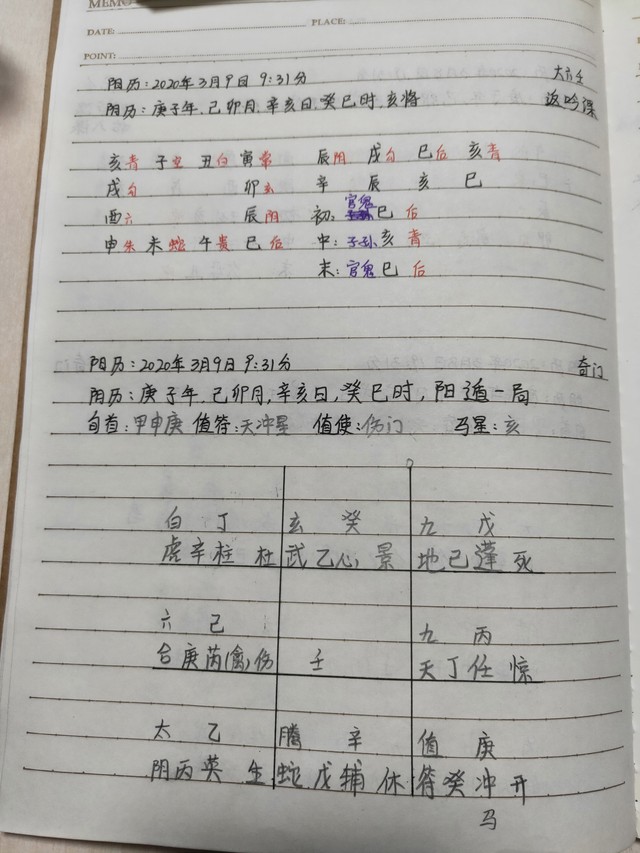 MEMO
DATE: PLACE:
POINT:
阳历:2020年3月9日 9:31分 大六壬
阴历:庚子年,己卯月,辛亥日,癸巳时,亥将 返吟课
亥青 子空 丑白 寅常 辰阴 戌勾 巳后 亥青
戌勾 卯玄 辛 辰 亥 巳
酉六 辰阴 初:官鬼巳 后
申朱 未蛇 午贵 巳后 中:子孙亥 青
末:官鬼巳 后
阳历:2020年3月9日 9:31分 奇门
阴历:庚子年,己卯月,辛亥日,癸巳时,阳遁一局
旬首:甲申庚 值符:天冲星 值使:伤门 马星:亥
白 丁 玄 癸 九 戊
虎辛柱 杜 武乙心 景 地己蓬 死
六 己 九 丙
合庚芮(禽)伤 壬 天丁任 惊
太 乙 腾 辛 值 庚
阴丙英 生 蛇戊辅 休 符癸冲 开
马